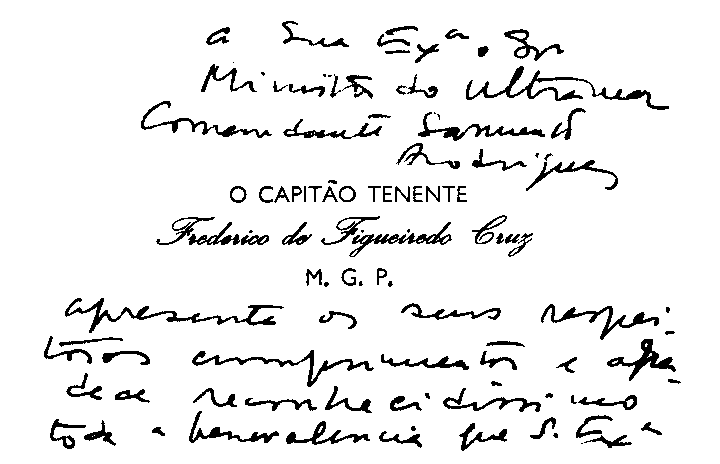 a Sua Exª o Sr
Ministro do Ultramar
Comandante Sarmento
Rodrigues
O CAPITÃO TENENTE
Frederico de Figueiredo Cruz
M. G. P.
apresenta os seus respei-
tosos cumprimentos e agra-
dece reconhecidíssimo
toda a benevalencia que S. Exª